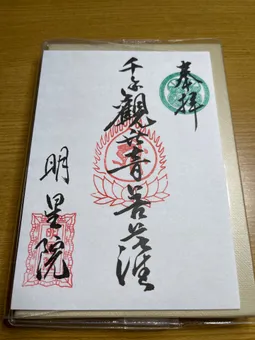 奉拝
千手觀世音菩薩
明星院